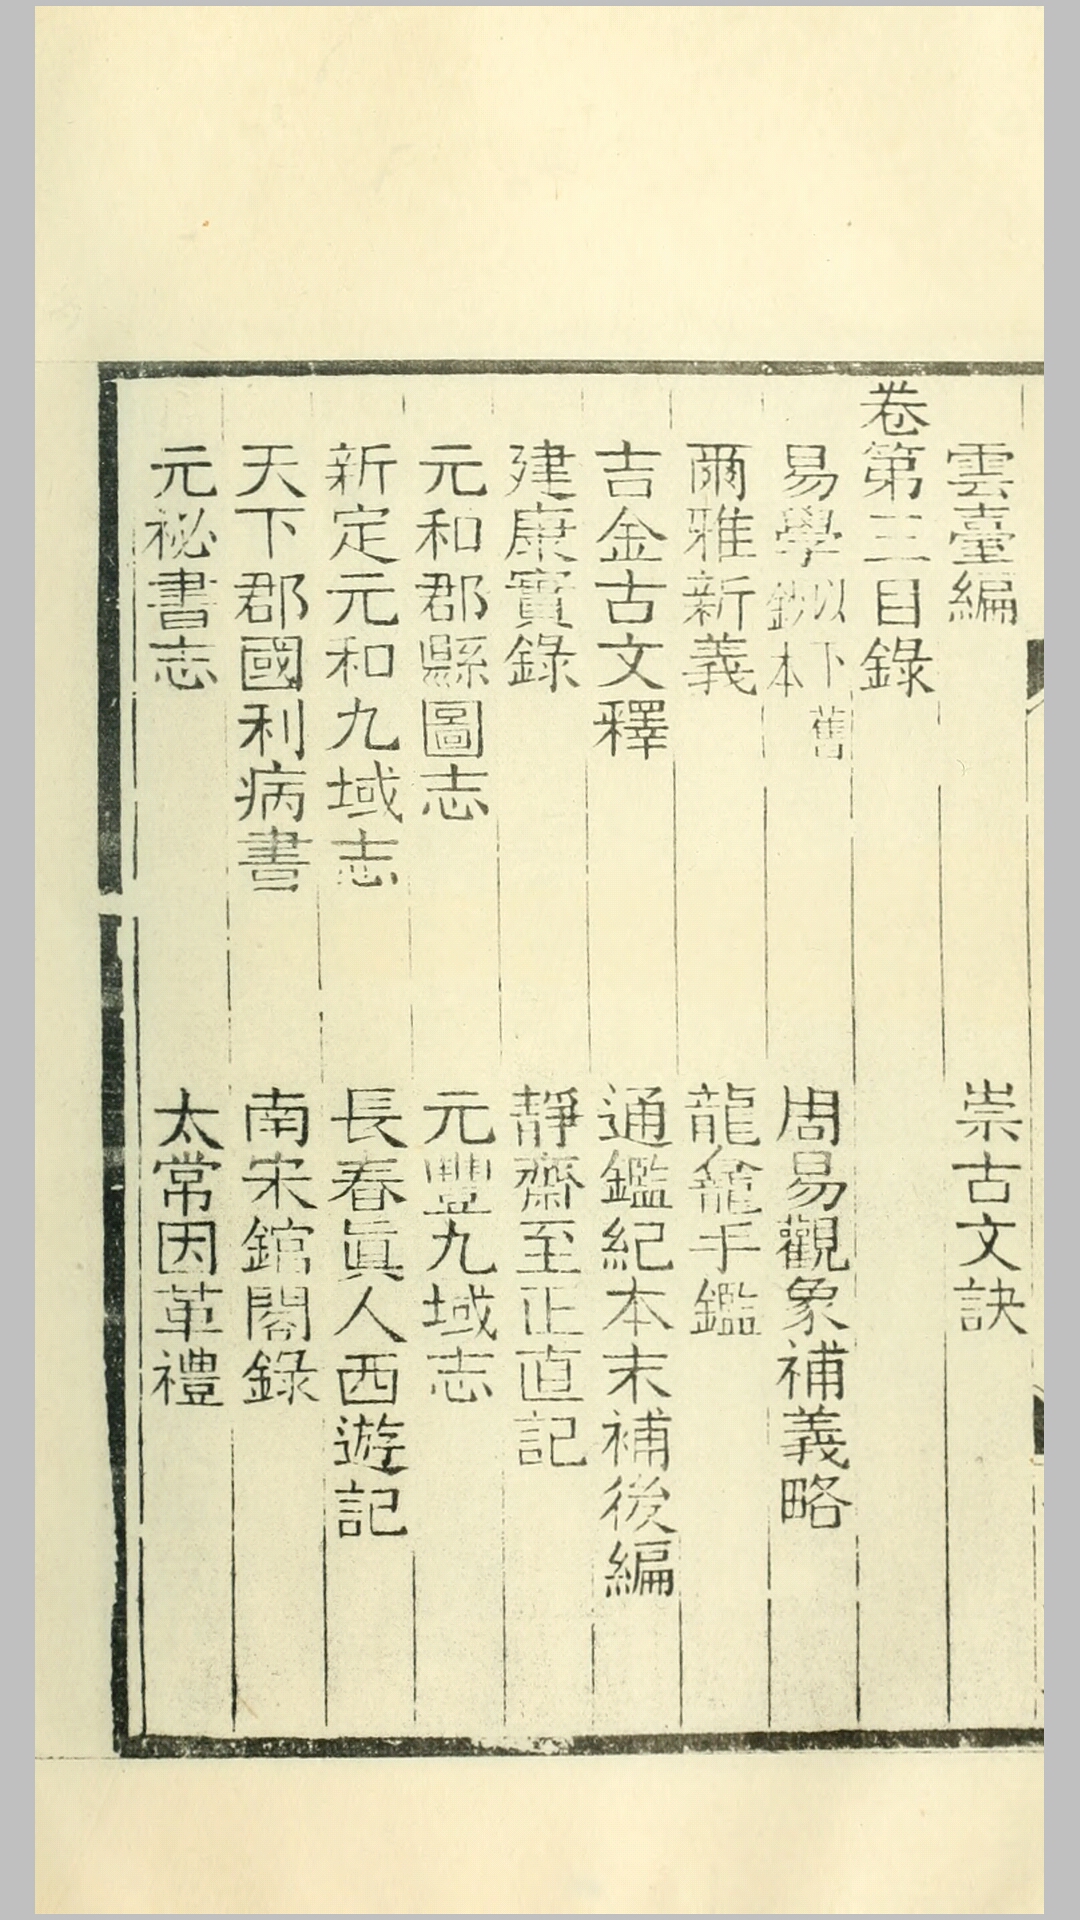 雲臺編　崇古文訣
卷第三目錄
易學以下舊鈔本　周易觀象補義略
爾雅新義　龍龕手鑑
吉金古文釋　通鑑紀本末補後編
建康實錄　靜齋至正直記
元和郡縣圖志　元豐九域志
新定元和九域志　長春眞人西遊記
天下郡國利病書　南宋館閣錄
元祕書志　太常因革禮